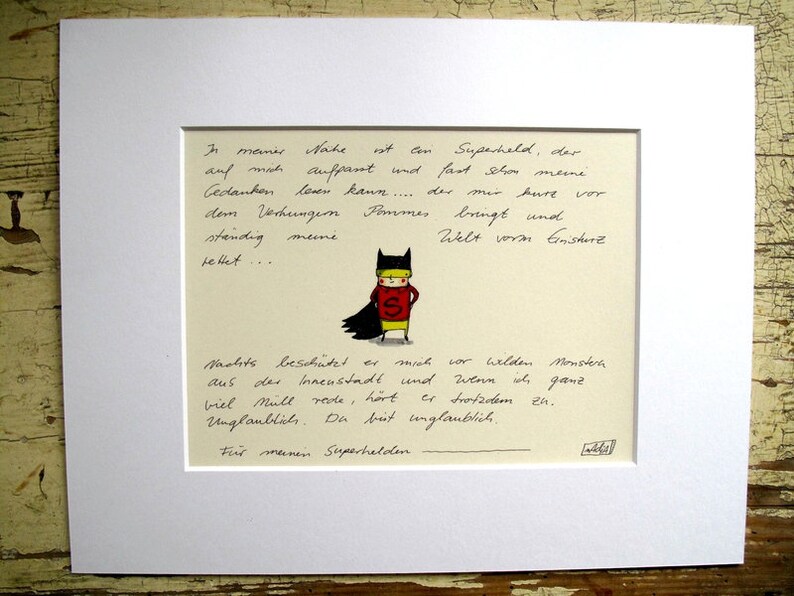 In meiner Nähe ist ein Superheld, der
auf mich aufpasst und fast schon meine
Gedanken lesen kann.... der mir kurz vor
dem Verhungern Pommes bringt und
ständig meine Welt vorm Einsturz
rettet...
S
Nachts beschützt er mich vor wilden Monstern
aus der Innenstadt und wenn ich ganz
viel Müll rede, hört er trotzdem zu.
Unglaublich. Du bist unglaublich.
Für meinen Superhelden